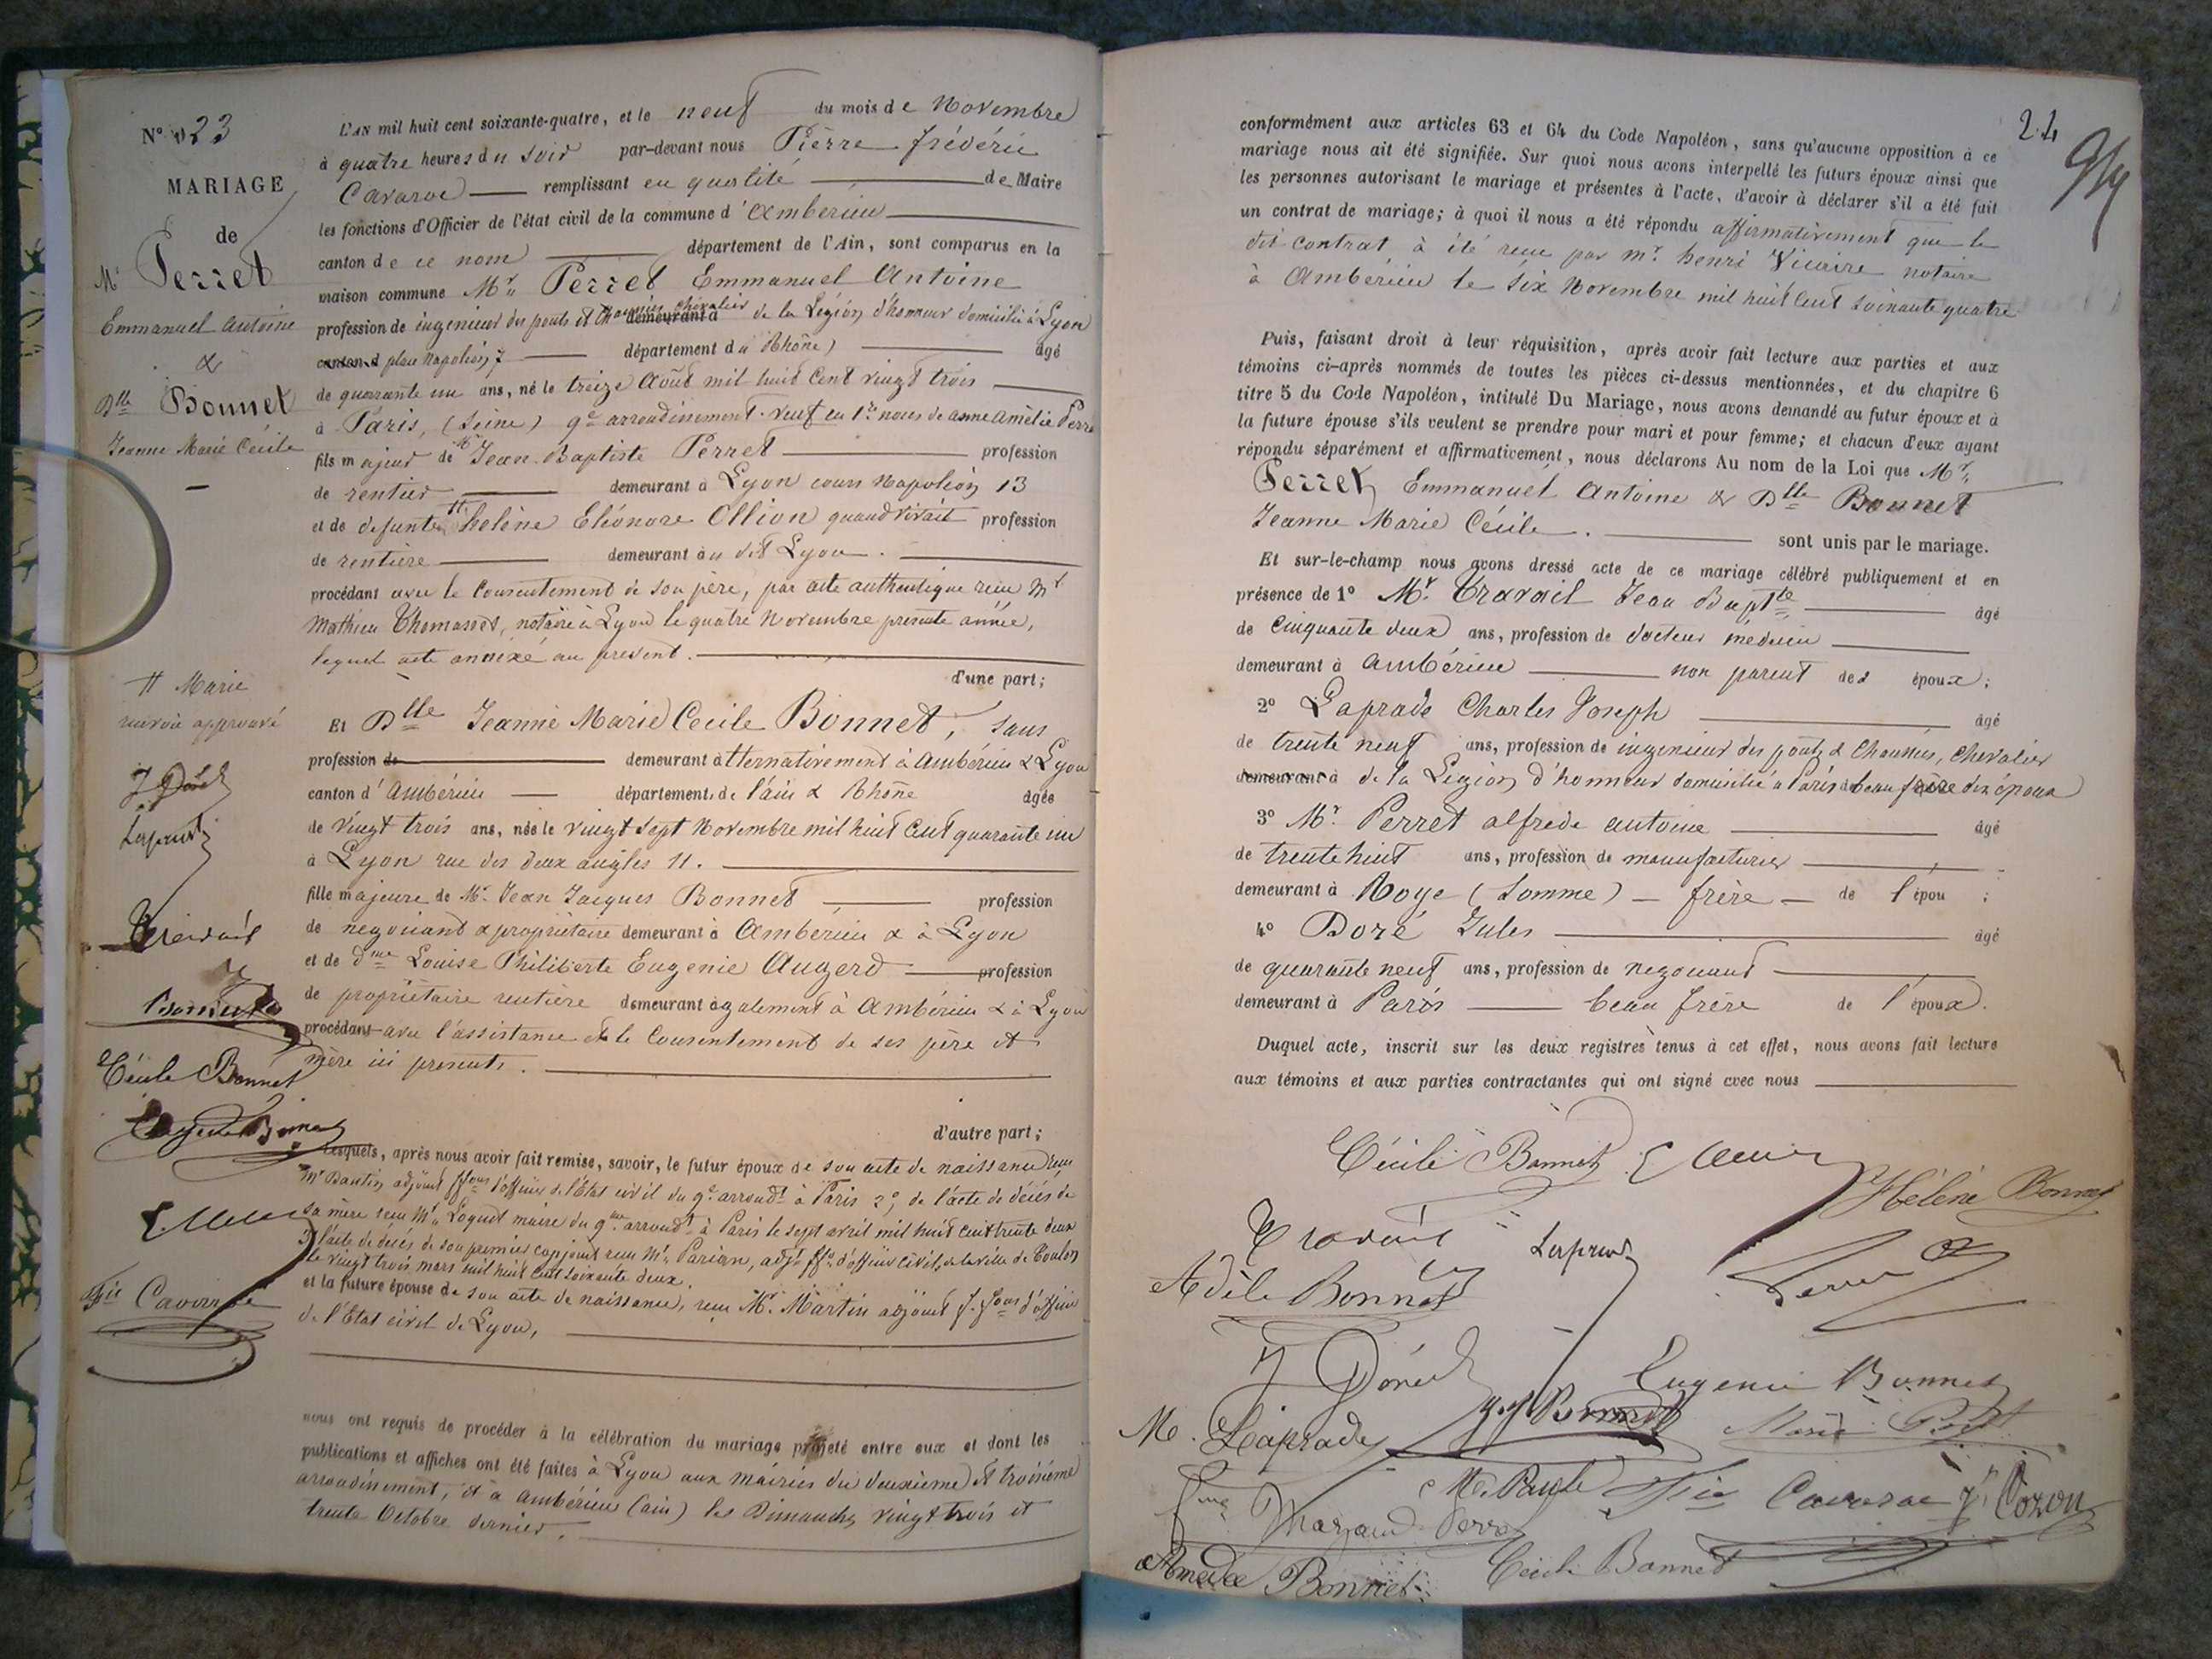 N° 23
MARIAGE
de
Mr Perret
Emmanuel Antoine
&
Dlle Bonnet
Jeanne Marie Cécile
L'AN mil huit cent soixante-quatre, et le neuf du mois de Novembre
à quatre heures du soir par-devant nous Pierre Frédéric
Cavaroc remplissant en qualité de Maire
les fonctions d'Officier de l'état civil de la commune d'Ambérieu
canton de ce nom département de l'Ain, sont comparus en la
maison commune Mr Perret Emmanuel Antoine
profession de ingenieur des ponts et Chaussées chevalier de la Légion d'honneur domicilié à Lyon
canton d place Napoléon 7 département du Rhône âgé
de quarante un ans, né le treize Août mil huit cent vingt trois
à Paris, (Seine) 9e arrondissement. veuf en 1res noces de anne Amélie
fils majeur de Mr Jean Baptiste Perret profession
de rentier demeurant à Lyon cours Napoléon 13
et de defunte # helène Eléonore Ollion quand vivait profession
de rentière demeurant au dit Lyon.
procédant avec le consentement de son père, par acte authentique reçu Mr
Mathieu Thomasset, notaire à Lyon le quatre Novembre presente année,
lequel acte annexé au present.
d'une part;
# Marie
renvoi approuvé
J Doré
Laprade
Travail
Bonnet
Cécile Bonnet
Eugenie Bonnet
Fic Cavaroc
Et Dlle Jeanne Marie Cecile Bonnet, sans
profession de demeurant alternativement à Ambérieu & Lyon
canton d'Ambérieu département de l'ain & Rhône âgée
de vingt trois ans, née le vingt sept Novembre mil huit cent quarante un
à Lyon rue des deux angles 11.
fille majeure de Mr Jean Jacques Bonnet profession
de negociant & propriétaire demeurant à Ambérieu & à Lyon
et de dme Louise Philiberte Eugenie Augerd profession
de propriétaire rentière demeurant également à Ambérieu & à Lyon
procédant avec l'assistance et le Consentement de ses père et
mère ici presents.
d'autre part;
Lesquels, après nous avoir fait remise, savoir, le futur époux de son acte de naissance reçu
Mr adjoint ffons d'officier de l'Etat civil du 9e arrondt à Paris 2°, de l'acte de décès de
sa mère reçu Mr Loquet maire du 9me arrondt à Paris le sept avril mil huit cent trente deux
3° l'acte de décès de son premier conjoint reçu Mr adjt ffon d'officier civil, de la ville de Toulon
le vingt trois mars mil huit cent soixante deux.
et la future épouse de son acte de naissance, reçu Mr. Martin adjoint f. fons d'officier
de l'Etat civil de Lyon,
nous ont requis de procéder à la célébration du mariage projeté entre eux et dont les
publications et affiches ont été faites à Lyon aux mairies du deuxième et troisième
arrondissement, et à Ambérieu (ain) les Dimanches vingt trois et
trente Octobre dernier.
24
conformément aux articles 63 et 64 du Code Napoléon, sans qu'aucune opposition à ce
mariage nous ait été signifiée. Sur quoi nous avons interpellé les futurs époux ainsi que
les personnes autorisant le mariage et présentes à l'acte, d'avoir à déclarer s'il a été fait
un contrat de mariage; à quoi il nous a été répondu affirmativement que le
dit contrat à été reçu par mr. henri Vicaire notaire
à Ambérieu le six Novembre mil huit cent soixante quatre
Puis, faisant droit à leur réquisition, après avoir fait lecture aux parties et aux
témoins ci-après nommés de toutes les pièces ci-dessus mentionnées, et du chapitre 6
titre 5 du Code Napoléon, intitulé Du Mariage, nous avons demandé au futur époux et à
la future épouse s'ils veulent se prendre pour mari et pour femme; et chacun d'eux ayant
répondu séparément et affirmativement, nous déclarons Au nom de la Loi que Mr.
Perret, Emmanuel Antoine & Dlle Bonnet
Jeanne Marie Cécile. sont unis par le mariage.
Et sur-le-champ nous avons dressé acte de ce mariage célébré publiquement et en
présence de 1° Mr. Travail Jean Baptte âgé
de Cinquante deux ans, profession de docteur médecin
demeurant à Ambérieu non parent des époux;
2° Laprade Charles Joseph âgé
de trente neuf ans, profession de ingenieur des ponts & Chaussées, Chevalier
demeurant à de la Legion d'honneur domicilié à Paris beau frère des époux
3° Mr. Perret alfrede antoine âgé
de trente huit ans, profession de manufacturier
demeurant à Roye (Somme) - frère - de l'épou ;
4° Doré Jules âgé
de quarante neuf ans, profession de negociant
demeurant à Paris beau frère de l'époux.
Duquel acte, inscrit sur les deux registres tenus à cet effet, nous avons fait lecture
aux témoins et aux parties contractantes qui ont signé avec nous
Cécile Bonnet
Hélène Bonnet
Travail
Laprade
Adèle Bonnet
Perret
J Doré
Eugenie Bonnet
M. Laprade
J. J. Bonnet
Fic Cavaroc
J. Cozon
Amédée Bonnet
Cécile Bonnet